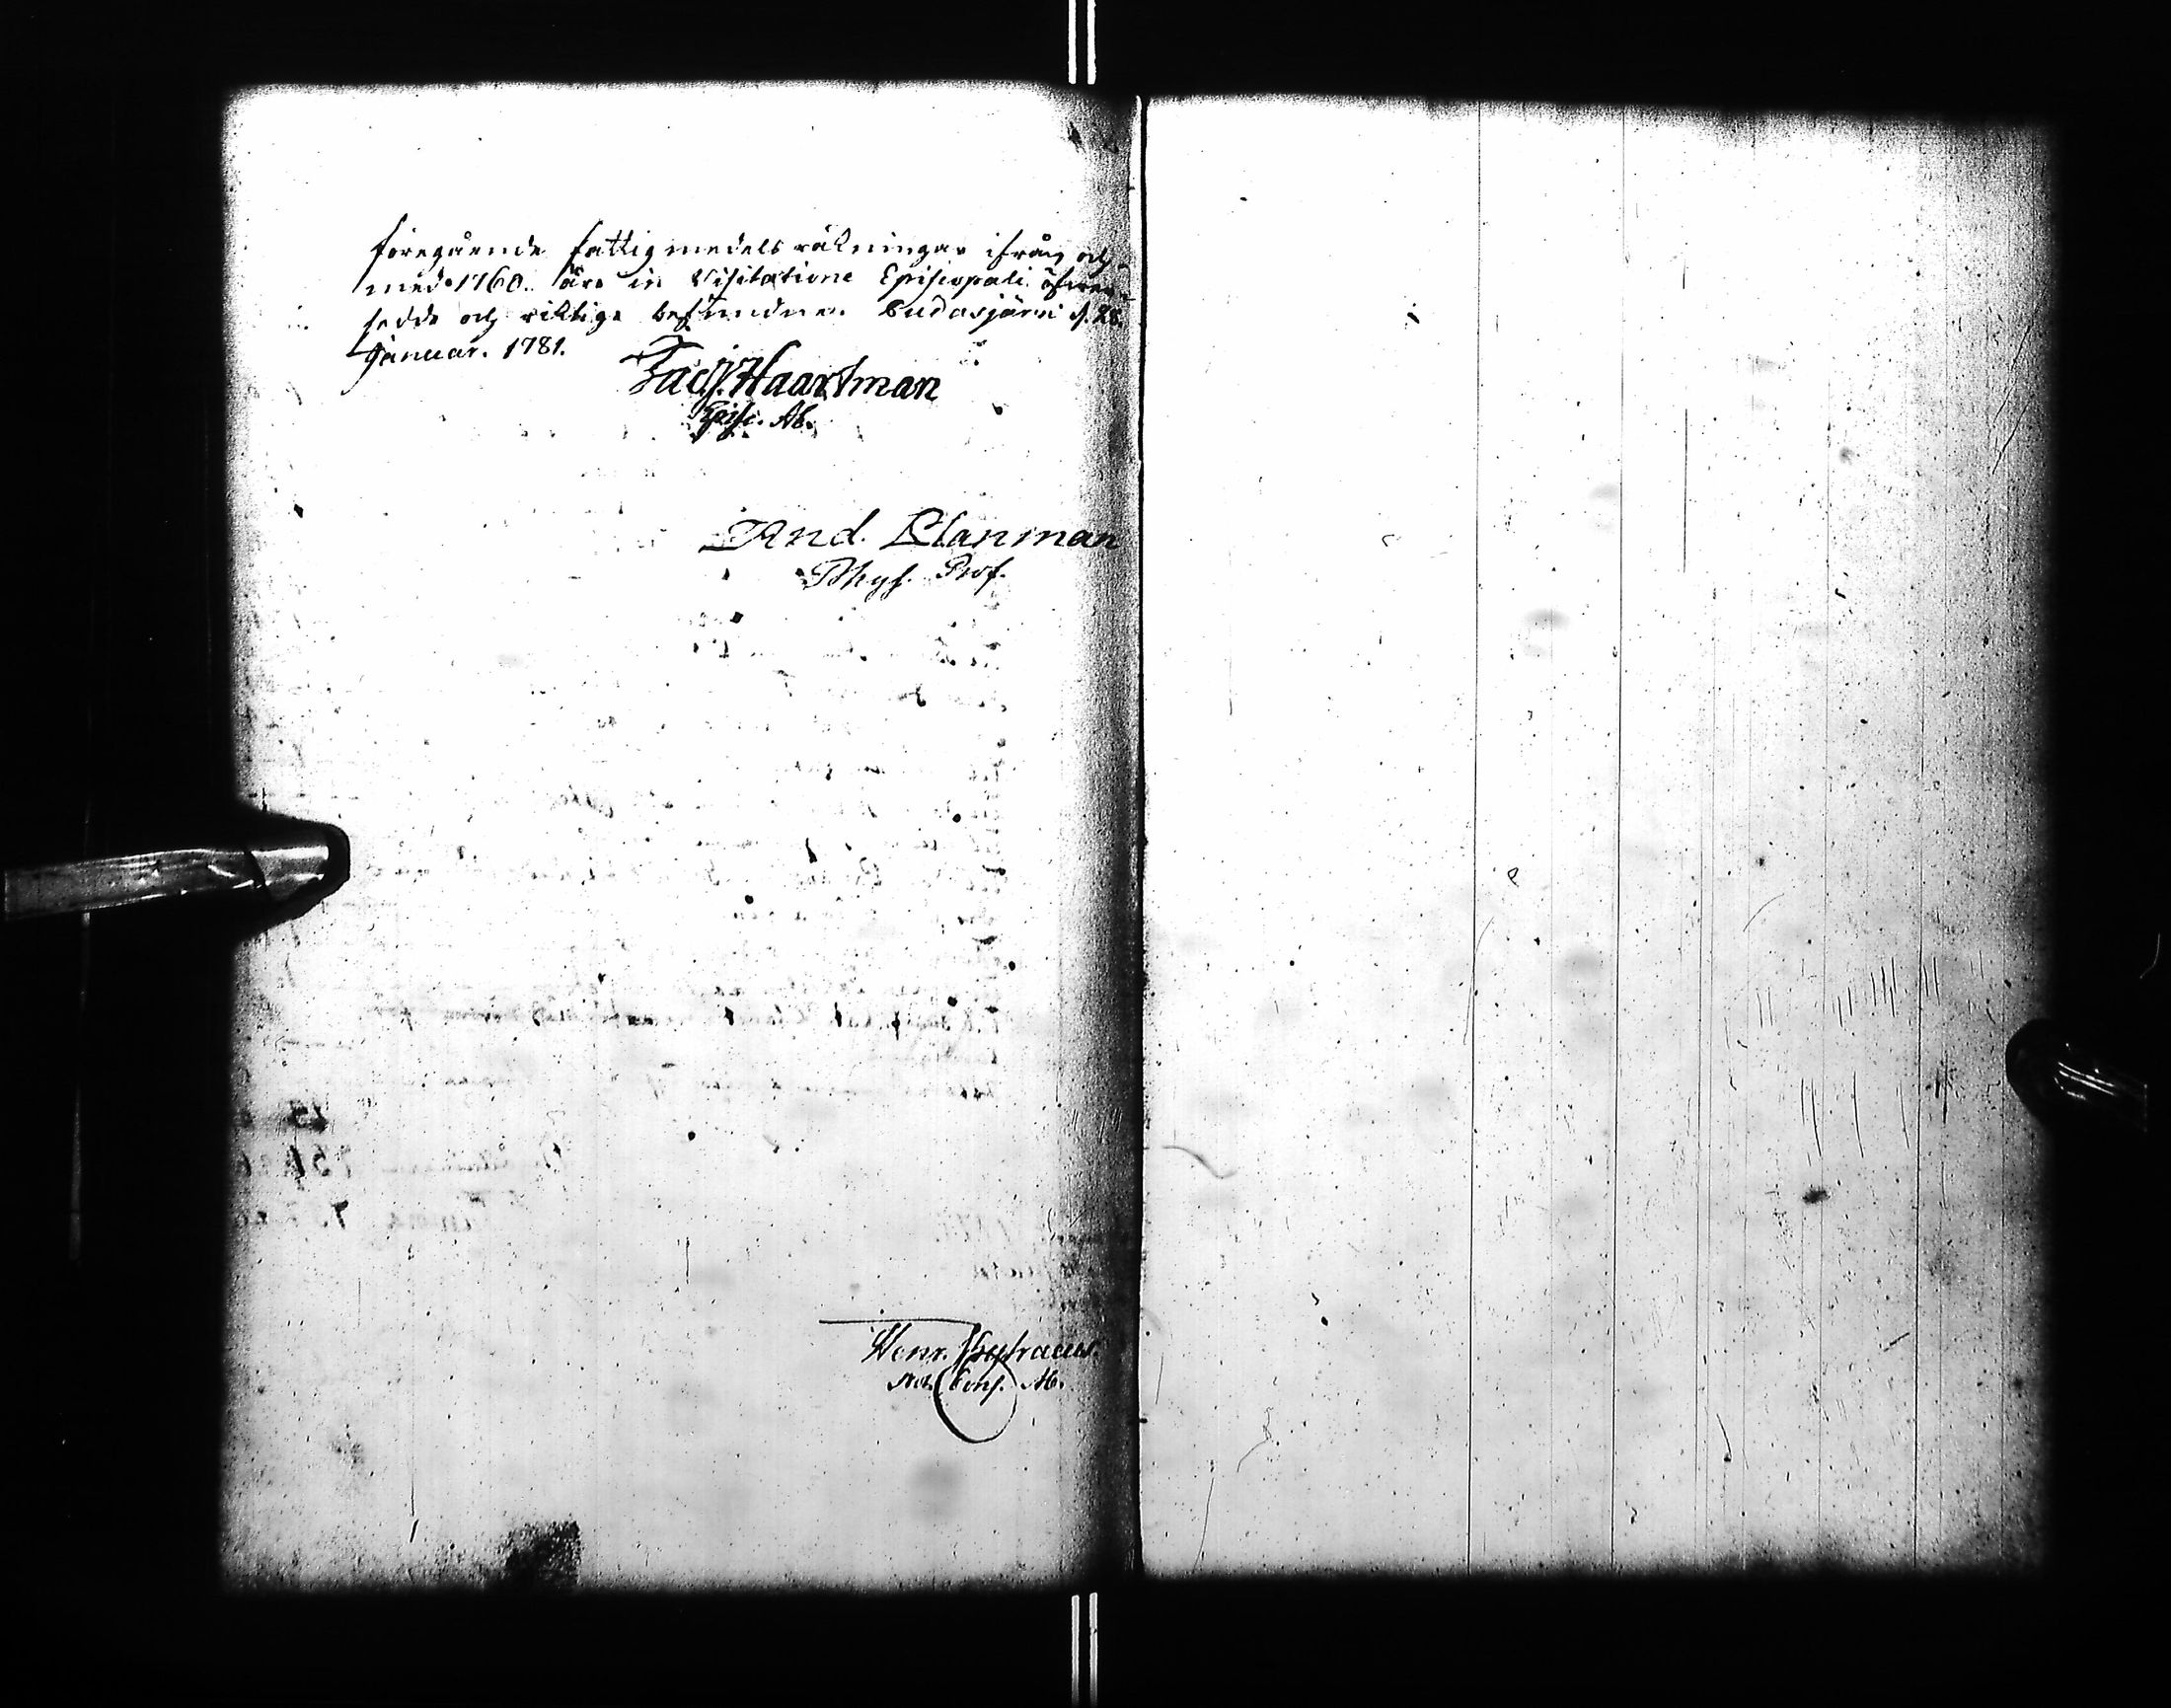 föregående fattigmedels räkningar ifrån och
med 1760. äro in Visitatione Episcopali öfver-
sedde och riktige befundne. Pudasjärvi d. 28.
Januar. 1781.
Jac. Haartman
Episc. Ab.
And. Planman
Phys. Prof.
Henr.
Not. Cons. Ab.